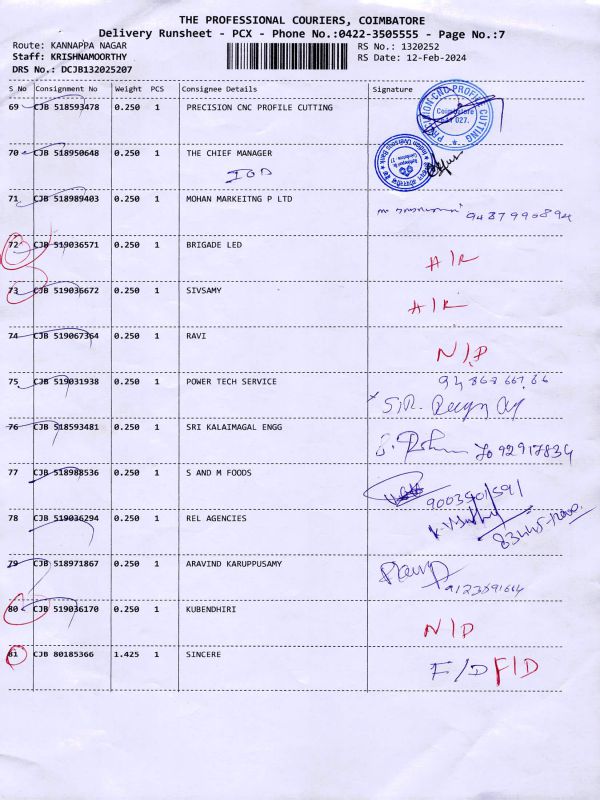 THE PROFESSIONAL COURIERS, COIMBATORE
Delivery Runsheet - PCX - Phone No.:0422-3505555 - Page No.:7
Route: KANNAPPA NAGAR RS No.: 1320252
Staff: KRISHNAMOORTHY RS Date: 12-Feb-2024
DRS No.: DCJB132025207
S No Consignment No Weight PCS Consignee Details Signature
69 CJB 518593478 0.250 1 PRECISION CNC PROFILE CUTTING
PRECISION CNC PROFILE CUTTING
Coimbatore
641 027.
70 CJB 518950648 0.250 1 THE CHIEF MANAGER
Indian Overseas Bank
71 CJB 518989403 0.250 1 MOHAN MARKEITNG P LTD
9487990894
72 CJB 519036571 0.250 1 BRIGADE LED
A/R
73 CJB 519036672 0.250 1 SIVSAMY
A/R
74 CJB 519067364 0.250 1 RAVI
N/D
75 CJB 519031938 0.250 1 POWER TECH SERVICE
76 CJB 518593481 0.250 1 SRI KALAIMAGAL ENGG
77 CJB 518988536 0.250 1 S AND M FOODS
9003901591
78 CJB 519036294 0.250 1 REL AGENCIES
79 CJB 518971867 0.250 1 ARAVIND KARUPPUSAMY
80 CJB 519036170 0.250 1 KUBENDHIRI
N/D
81 CJB 80185366 1.425 1 SINCERE
F/D F/D